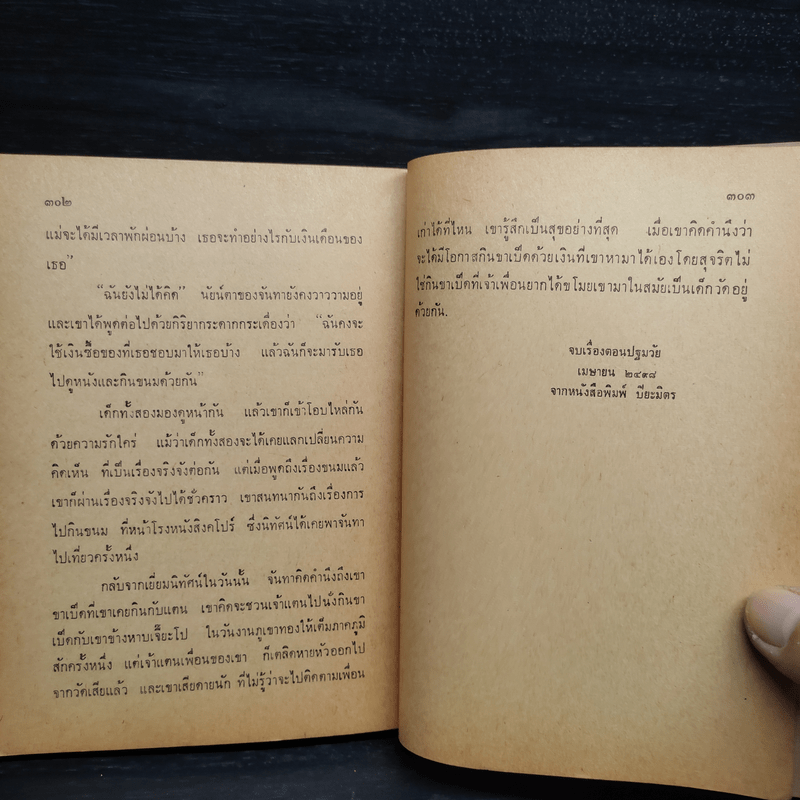 ๓๐๒
แม่จะได้มีเวลาพักผ่อนบ้าง เธอจะทำอย่างไรกับเงินเดือนของ
เธอ”
“ฉันยังไม่ได้คิด” นัยน์ตาของจันทายังคงวาววามอยู่
และเขาได้พูดต่อไปด้วยกิริยากระดากกระเดื่องว่า “ฉันคงจะ
ใช้เงินซื้อของที่เธอชอบมาให้เธอบ้าง แล้วฉันก็จะมารับเธอ
ไปดูหนังและกินขนมด้วยกัน”
เด็กทั้งสองมองดูหน้ากัน แล้วเขาก็เข้าโอบไหล่กัน
ด้วยความรักใคร่ แม้ว่าเด็กทั้งสองจะได้เคยแลกเปลี่ยนความ
คิดเห็น ที่เป็นเรื่องจริงจังต่อกัน แต่เมื่อพูดถึงเรื่องขนมแล้ว
เขาก็ผ่านเรื่องจริงจังไปได้ชั่วคราว เขาสนทนากันถึงเรื่องการ
ไปกินขนม ที่หน้าโรงหนังสิงคโปร์ ซึ่งนิทัศน์ได้เคยพาจันทา
ไปเที่ยวครั้งหนึ่ง
กลับจากเยี่ยมนิทัศน์ในวันนั้น จันทาคิดคำนึงถึงเขา
ขาเป็ดที่เขาเคยกินกับแตน เขาคิดจะชวนเจ้าแตนไปนั่งกินขา
เป็ดกับเขาข้างหาบเจี๊ยะโป ในวันงานภูเขาทองให้เต็มภาคภูมิ
สักครั้งหนึ่ง แต่เจ้าแตนเพื่อนของเขา ก็เตลิดหายหัวออกไป
จากวัดเสียแล้ว และเขาเสียดายนัก ที่ไม่รู้ว่าจะไปติดตามเพื่อน
๓๐๓
เก่าได้ที่ไหน เขารู้สึกเป็นสุขอย่างที่สุด เมื่อเขาคิดคำนึงว่า
จะได้มีโอกาสกินขาเป็ดด้วยเงินที่เขาหามาได้เองโดยสุจริตไม่
ใช่กินขาเป็ดที่เจ้าเพื่อนยากได้ขโมยเขามาในสมัยเป็นเด็กวัดอยู่
ด้วยกัน.
จบเรื่องตอนปฐมวัย
เมษายน ๒๔๙๘
จากหนังสือพิมพ์ ปิยะมิตร